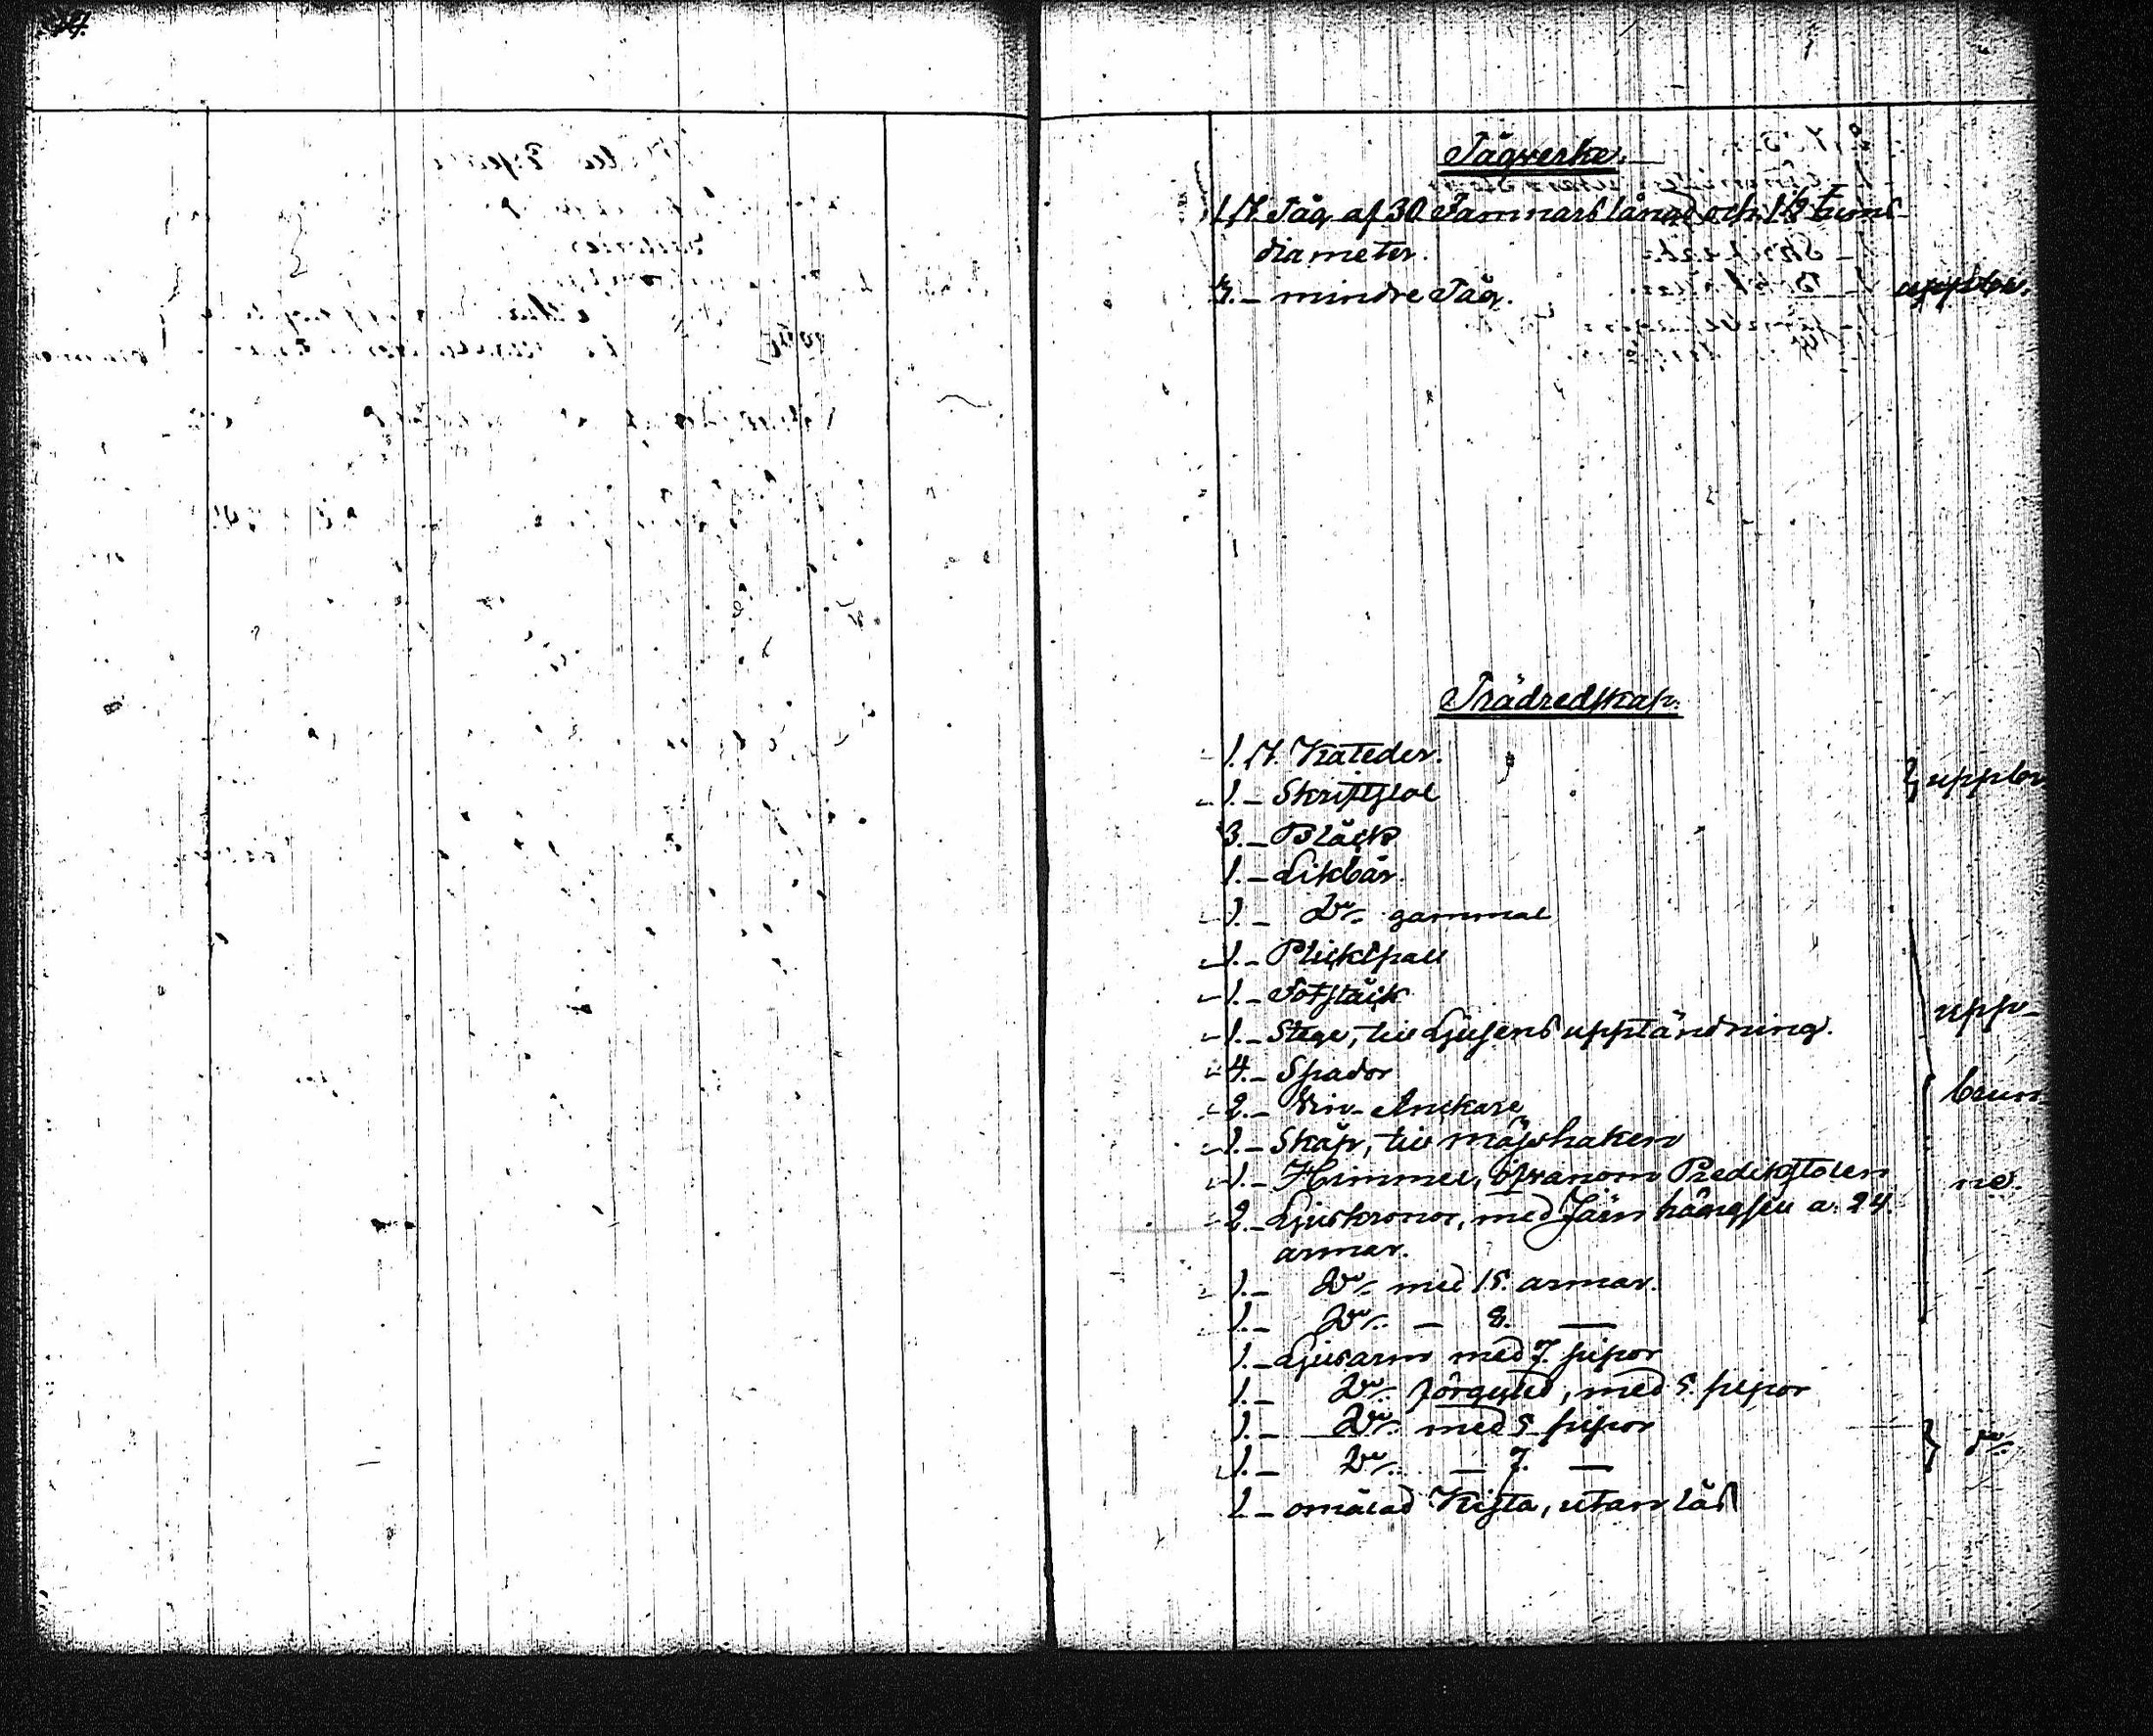 Tågverke.
1. St. Tåg af 30 Famnars längd och 1½ tums
diameter.
3. – mindre Tåg. uppbr.
Trädredskap.
1. St. Kateder.
1. – Skriftstol } uppbr
3. – Bläck
1. – Likbår.
1. – Do gammal
1. – Pliktpall
1. – Fotstäck
1. – Stege, till Ljusens upptändning. upp-
4. – Spador
2. – Vin-Anckare brun
1. – Skåp, till mässhaken
1. – Himmel, ofvanom Predikstolen ne.
2. – Ljuskronor, med Järn hängsel a. 24.
armar.
1. – Do med 15. armar.
1. – Do – 8. –
1. – Ljusarm med 7. pipor
1. – Do förgyld, med 5. pipor
1. – Do med 5 pipor
1. – Do – 7. – } do
1. – omålad Kista, utan lås